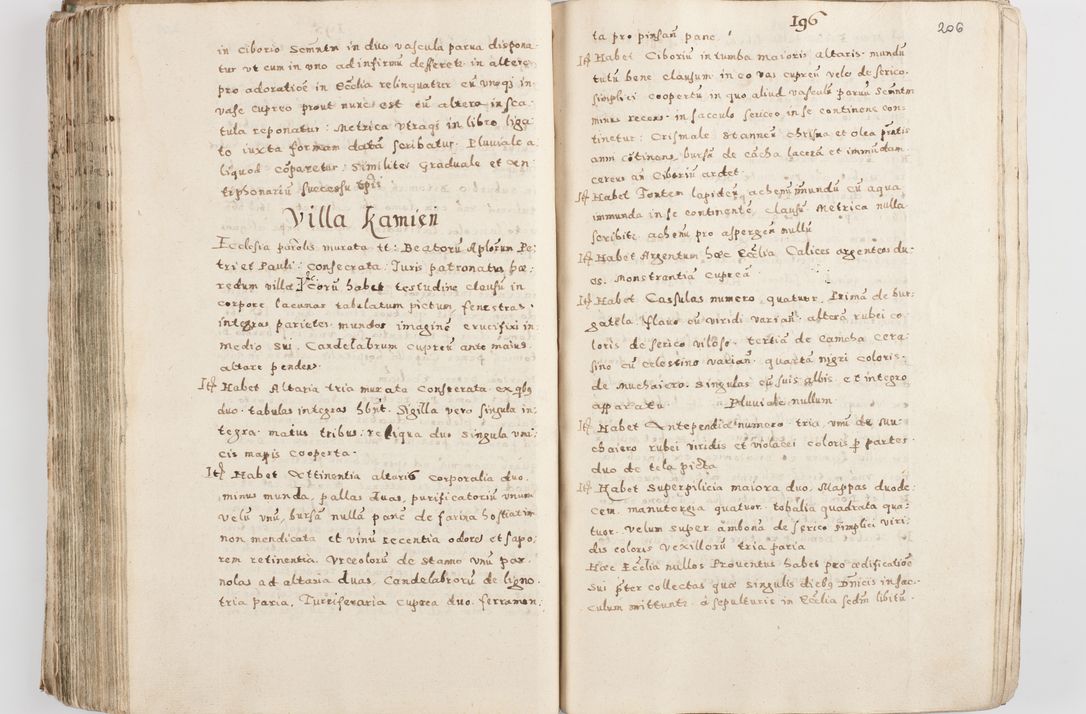 in Ciborio Scmntm in duo vascula parua dispona-
tur vt cum in vno ad infirmū defferete in altero
pro adoratioē in Ecclīa relinquatur cū vnoqȝ in
vase cupreo prout nunc est cū altero in sca-
tula reponatur: Metrica vtraqȝ in libro liga-
to iuxta formam datā scribatur. Pluuiale a-
liquod cōparetur Similiter Graduale et An-
tiphonariū successu tp̄is
Villa Kamien
Ecclesia paro͞lis murata tt: Beatorū Aplorum Pe-
tri et Pauli: Consecrata: Juris patronatus hæ-
redum villæ Ei͞corū habet testudine clausū in
corpore lacunar tabulatum pictum, fenestras
integras parietes mundos imaginē crucifixi in
medio sui, Candelabrum cupreū ante maius
altare pendes.
Itȝ Habet Altaria tria murata Consecrata. ex qbȝ
duo tabulas integras hbn̄t. Sigilla vero singula in-
tegra. maius tribus: reliqua duo singula vni-
cis mappis cooperta.
Itȝ Habet Attinentia altaris Corporalia duo.
minus munda, pallas duas, purificatoriū vnum
velū vnū, bursā nullā panē de farina hostiarum
non mendicata et vinū recentia odorē et sapo-
rem retinentia. Vrceolorū de Stanno vnū par
nolas ad altaria duas, Candelabrorū de ligno
tria paria, Turriferaria cuprea duo. ferramen-
196
206
ta pro pinsan̄ pane
Itȝ Habet Ciboriū in tumba maioris altaris. mundū
tutū bene clausum in eo vas cupreū velo de serico.
simplici coopertū in quo aliud vasculū paruū Scmntm
minus recens. in sacculo sericeo in se continens con-
tinetur: Crismale Stanneū chrisma et olea pn̄tis
anni cōtinens, bursā de cācha lacera et immūdam
cereus an̄ Ciboriū ardet.
Itȝ Habet Fontem lapideū, achenū mundū cū aqua
immunda in se continentē clausū Metrica nulla
scribitur achenū pro aspergen̄ nullū
Itȝ Habet Argentum hæc Ecclīa Calices argenteos du-
os. Monstrantiā cupreā
Itȝ Habet Casulas numero quatuor. Primā de bur-
gatela flauo cū viridi varian̄. alterā rubei co-
loris de serico viloso. tertiā de Camcha Cera-
sino cū celestino varian̄. quartā nigri coloris.
de Muchaiero. Singulas cū suis albis et integro
apparatu. Pluuiale nullum.
Itȝ Habet Antependia numero tria, vnū de Mu-
chaiero rubei viridis et violacei coloris p partes.
duo de tela picta
Itȝ Habet Superpilicia maiora duo. Mappas duode-
cem. manutergia quatuor. tobalia quadrata qua-
tuor. velum super ambonā de serico simplici viri-
dis coloris vexillorū tria paria
Hæc Ecclīa nullos Prouentus habet pro ædificatiōe
sui p̄ter collectas quæ singulis diebȝ Dn̄icis in sac-
culum mittunt: à sepulturis in Ecclīa sedm̄ libitū.